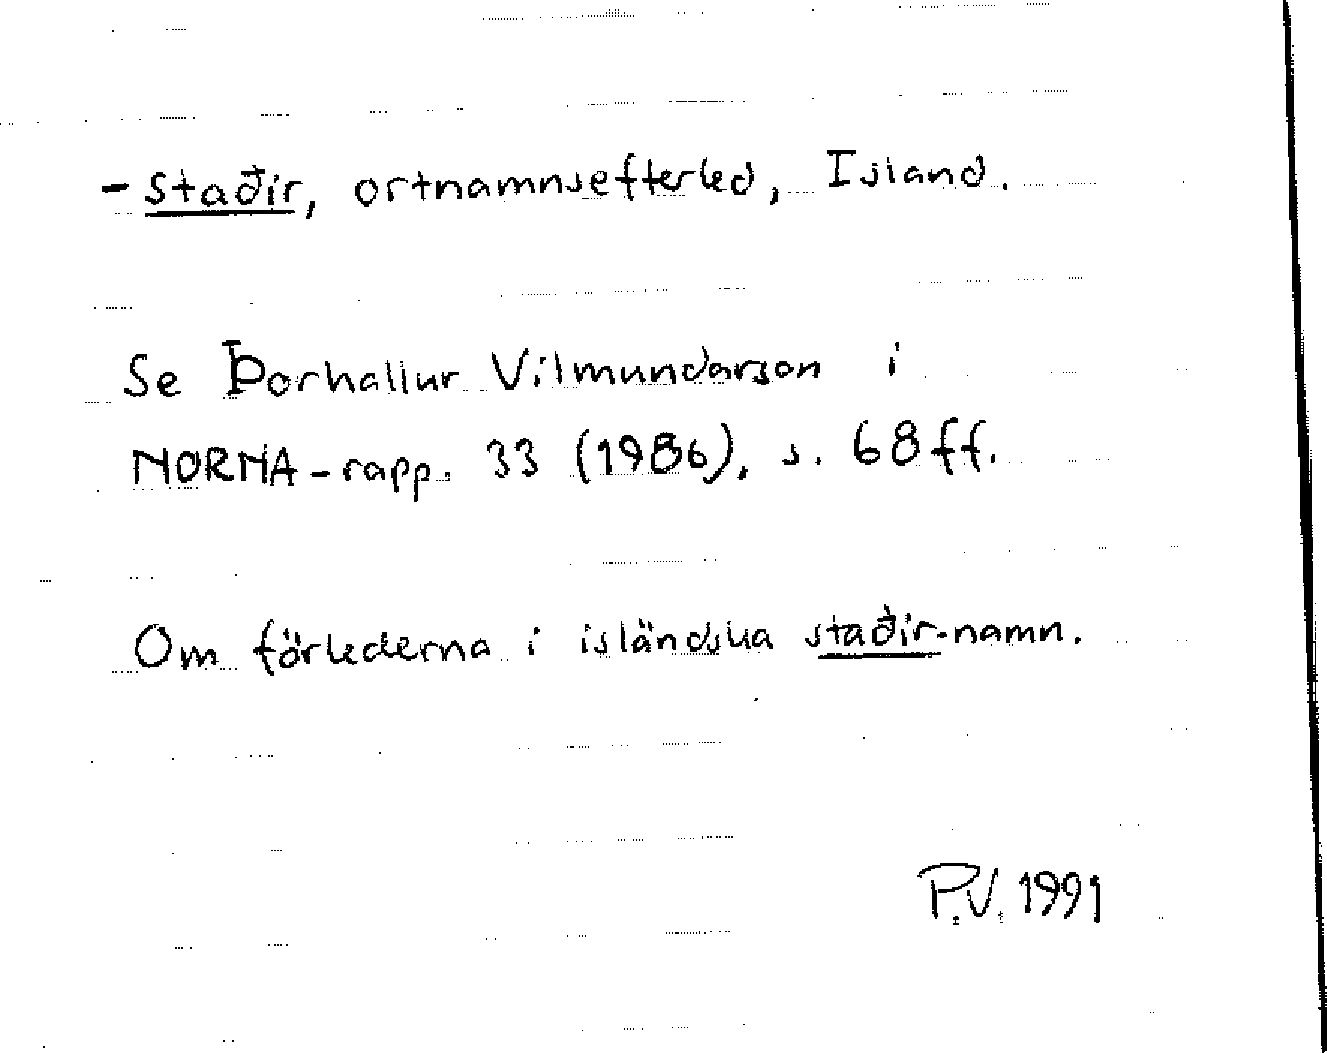 - staðir, ortnamnsefterled, Island.
Se Þorhallur Vilmundarson i
NORNA-rapp. 33 (1986), s. 68ff.
Om förlederna i isländska staðir-namn.
P.V. 1991